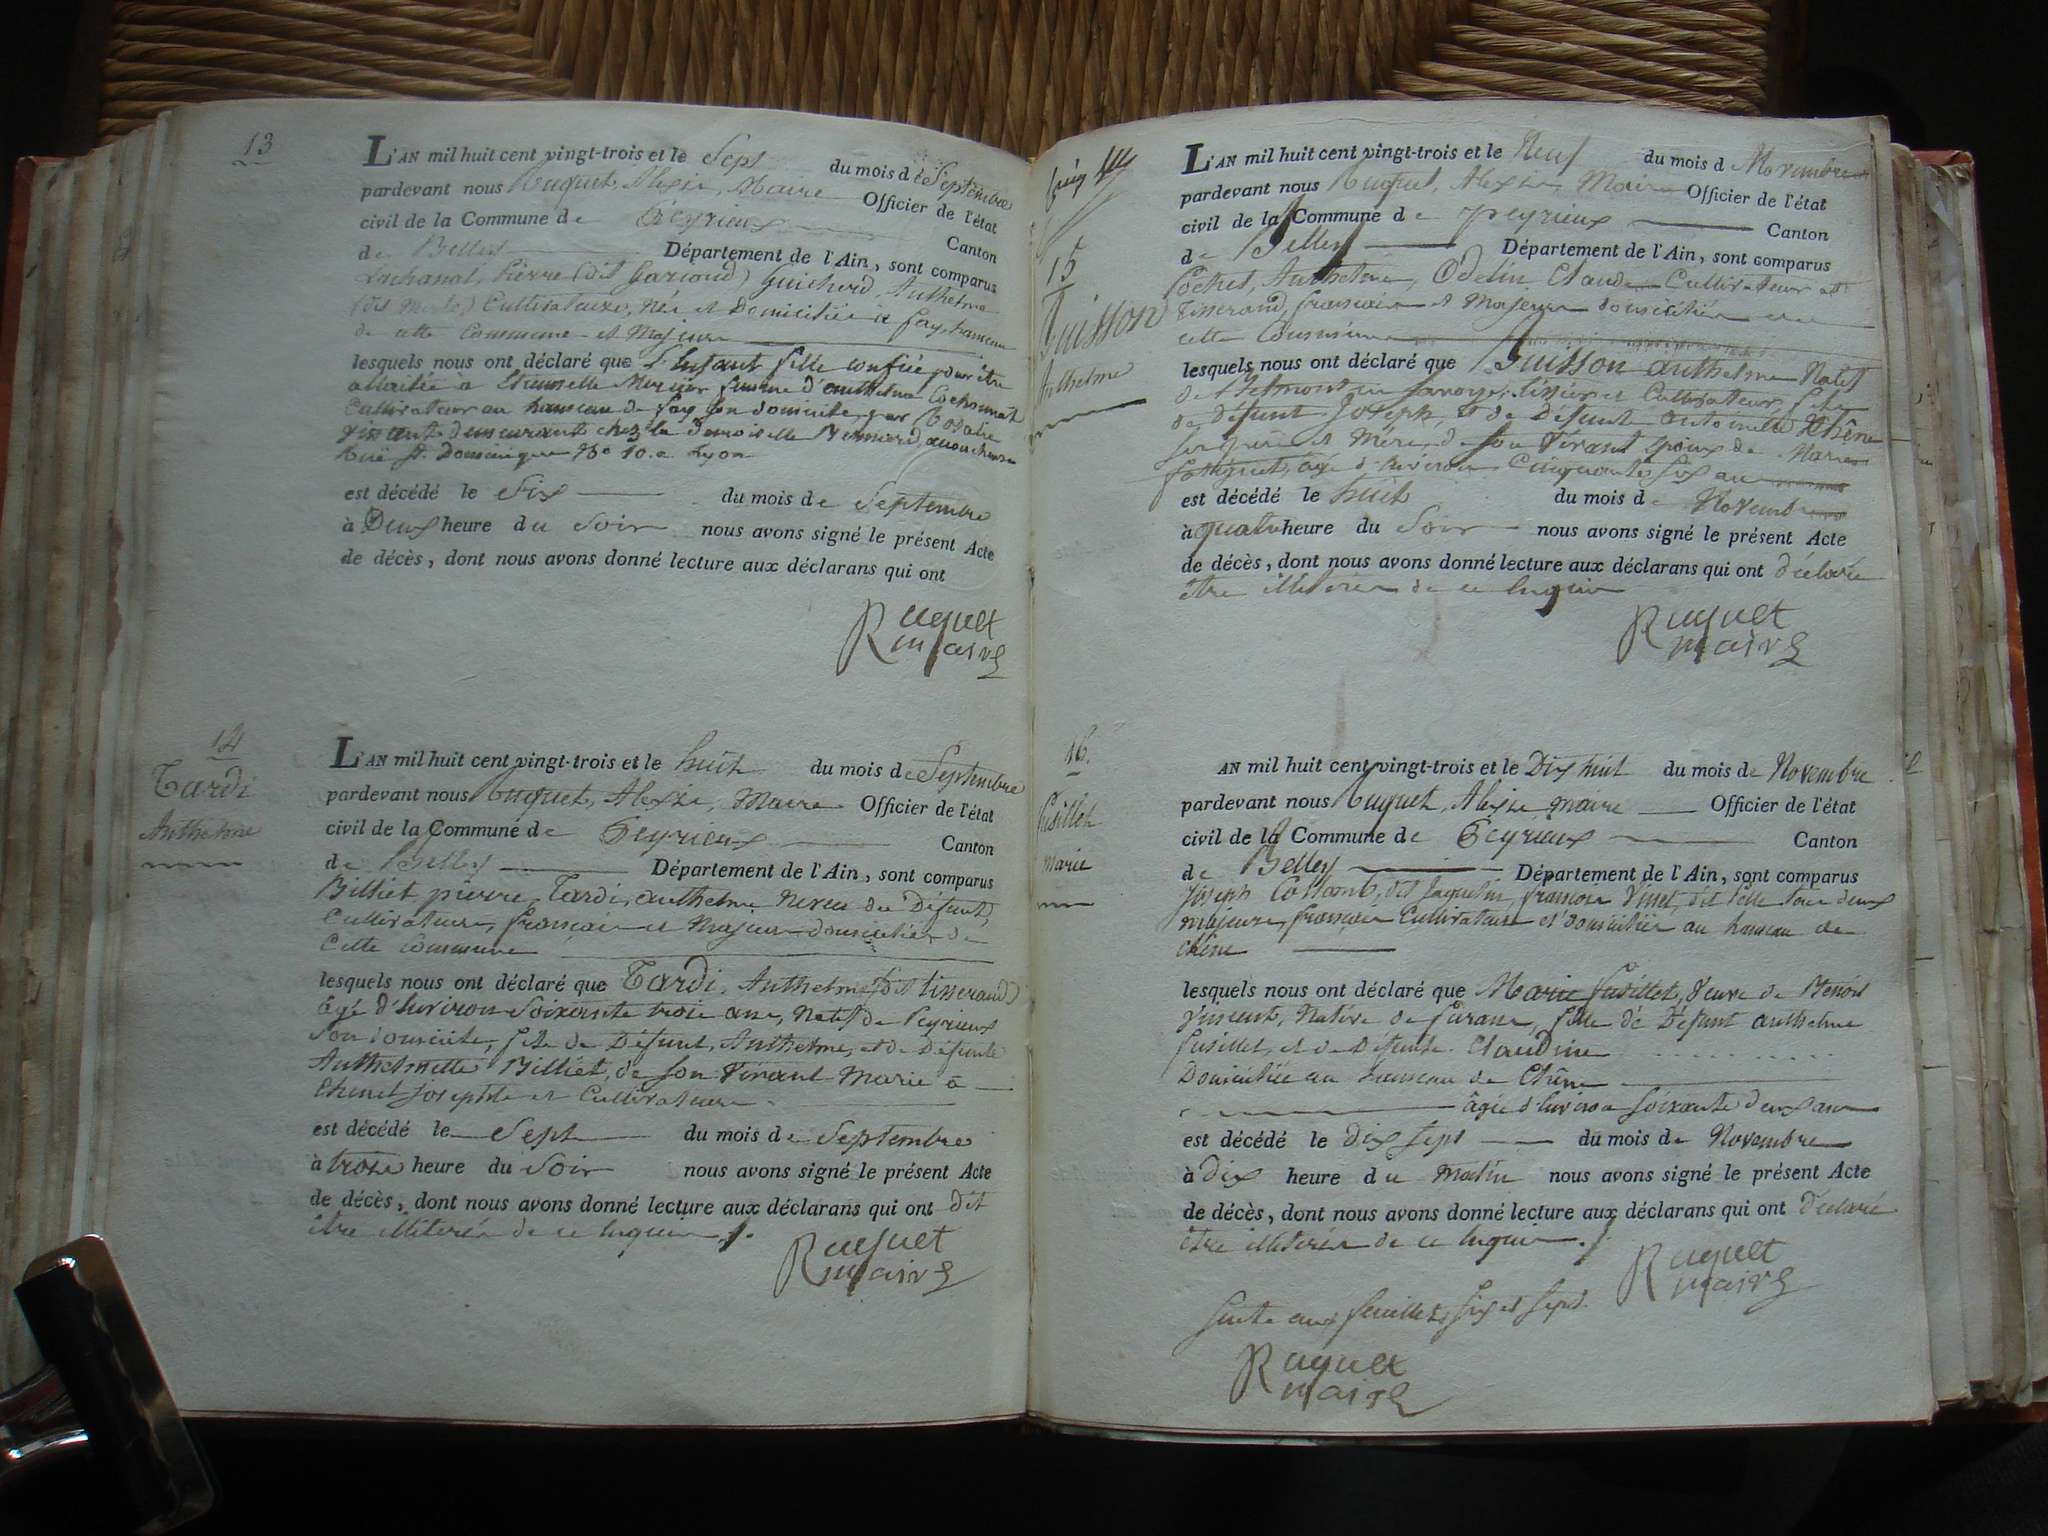 13
L'AN mil huit cent vingt-trois et le Sept du mois de Septembre
pardevant nous Ruquet, Alexie, Maire Officier de l'état
civil de la Commune de Peyrieux Canton
de Belley Département de l'Ain, sont comparus
Lachanal, Pierre (dit Gariond) Guichard, Anthelme
(dit Merle) Cultivateurs, Nés et Domiciliés à fay, hameau
de cette Commune et Majeurs
lesquels nous ont déclaré que l'Enfant fille confiée pour être
allaitée a femme d'anthelme
Cultivateur au hameau de fay son domicile, par
demeurante chez la demoiselle Bernard, accoucheuse
Ruë St. Dominique No 10. a Lyon
est décédé le Six du mois de Septembre
à Deux heure du Soir nous avons signé le présent Acte
de décès, dont nous avons donné lecture aux déclarans qui ont
Ruquet
maire
14
Tardi
Anthelme
L'AN mil huit cent vingt-trois et le huit du mois de Septembre
pardevant nous Ruquet, Alexie, Maire Officier de l'état
civil de la Commune de Peyrieux Canton
de Belley Département de l'Ain, sont comparus
Billiet pierre, Tardi, anthelme Neveu du Défunt,
Cultivateurs, francais et Majeurs domiciliés de
Cette commune
lesquels nous ont déclaré que Tardi, Anthelme (dit tisserand)
Âgé d'Environ Soixante trois ans, Natif de Peyrieux
Son domicile, fils de Défunt, Anthelme, et de Défunte
Anthelmette Billiet, de son Vivant Marié à
Chenet Josephte et Cultivateur
est décédé le Sept du mois de Septembre
à trois heure du Soir nous avons signé le présent Acte
de décès, dont nous avons donné lecture aux déclarans qui ont dit
être illiterés de ce Enquis.
Ruquet
maire
15
Buisson
Anthelme
L'AN mil huit cent vingt-trois et le Neuf du mois de Novembre
pardevant nous Ruquet, Alexie, Maire Officier de l'état
civil de la Commune de peyrieux Canton
de Belley Département de l'Ain, sont comparus
Pochet, Anthelme, Odelin, Claude Cultivateur et
Tisserand, francais et Majeurs domiciliés en
cette Commune
lesquels nous ont déclaré que Buisson anthelme Natif
de Belmont en Savoye, tissier et Cultivateur, fils
de Défunt Joseph, et de Défunte antoinette Chêne
ses père et Mère, de son Vivant époux de Marie
âgé d'Environ Cinquante six ans
est décédé le huit du mois de Novembre
à quatre heure du Soir nous avons signé le présent Acte
de décès, dont nous avons donné lecture aux déclarans qui ont déclaré
être illiterés de ce Enquis
Ruquet
maire
16.
fusillet
marie
AN mil huit cent vingt-trois et le Dix huit du mois de Novembre
pardevant nous Ruquet, Alexie maire Officier de l'état
civil de la Commune de Peyrieux Canton
de Belley Département de l'Ain, sont comparus
Joseph Collomb, dit Jaquelin, francois Vinet, dit tous deux
majeurs, francais Cultivateurs et domiciliés au hameau de
Chêne
lesquels nous ont déclaré que Marie fusillet, Veuve de Benoit
Vincent, Native de furans, fille de Défunt anthelme
fusillet, et de Défunte Claudine
Domiciliée au hameau de Chêne
âgée d'Environ soixante deux ans
est décédé le dix sept du mois de Novembre
à dix heure du matin nous avons signé le présent Acte
de décès, dont nous avons donné lecture aux déclarans qui ont déclaré
être illiterés de ce Enquis.
Ruquet
maire
Suite aux feuillets six et sept.
Ruquet
maire